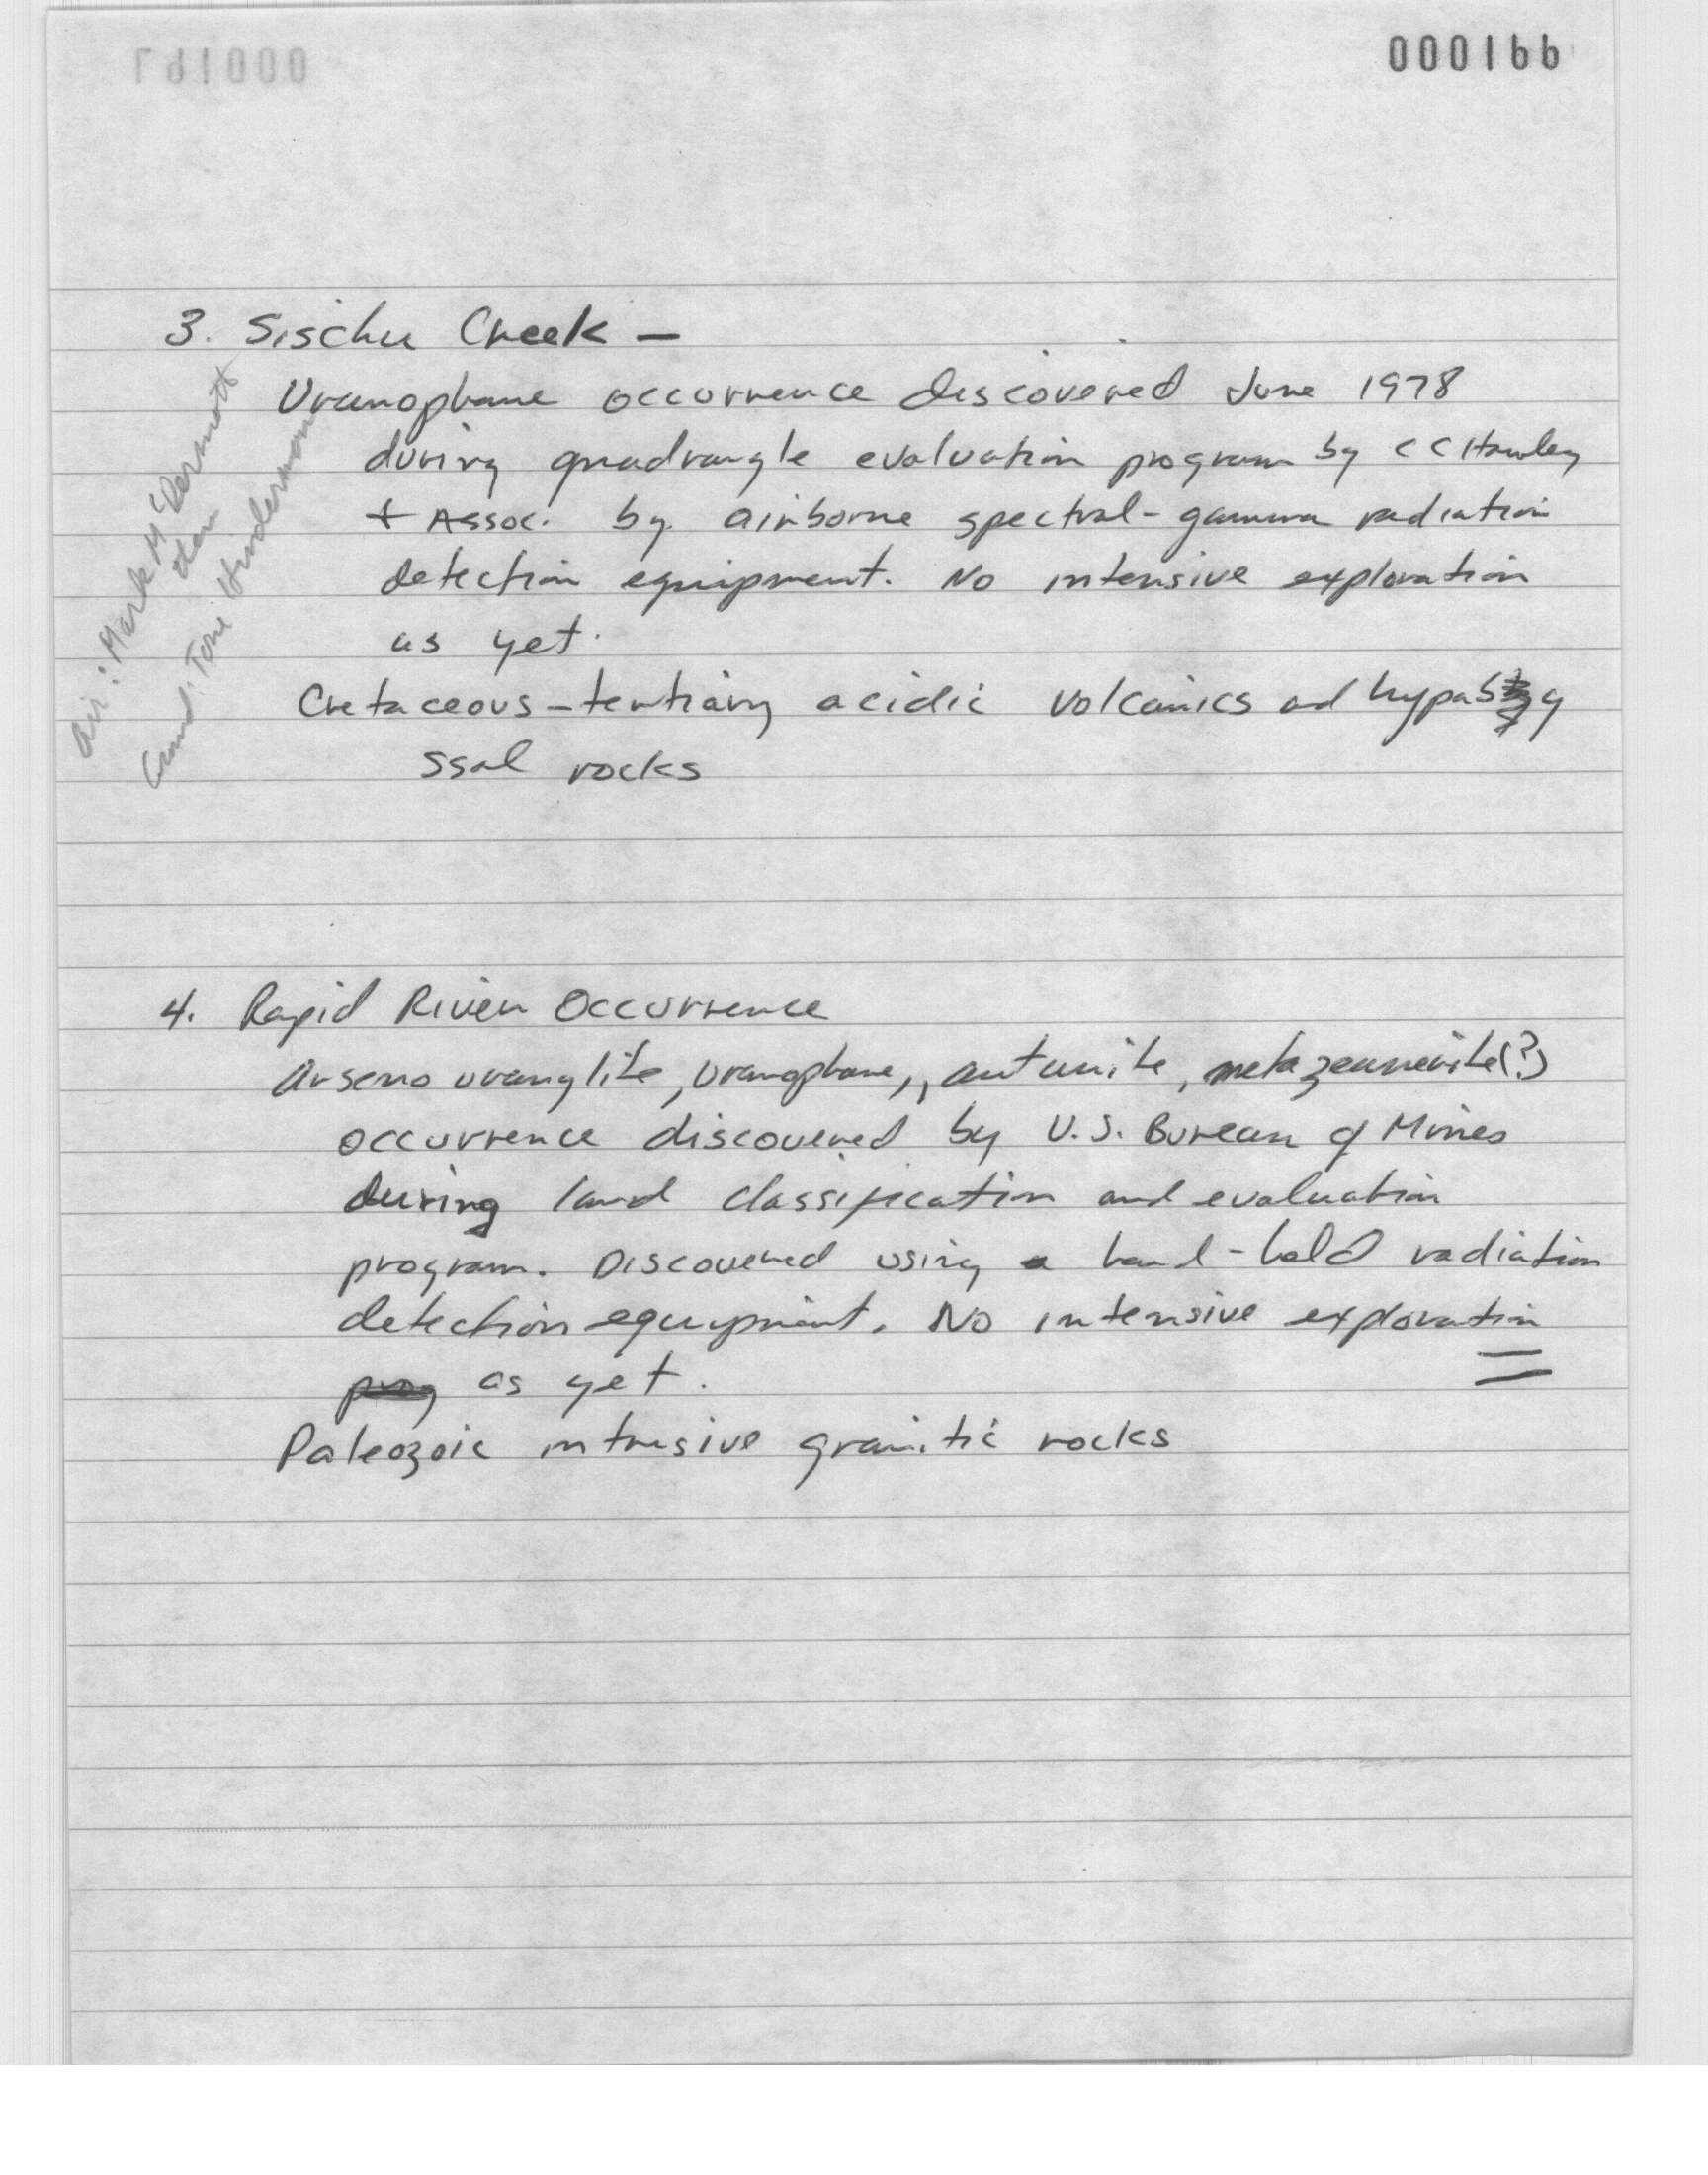 000166
3. Sischu Creek –
Uranophane occurrence discovered June 1978
during quadrangle evaluation program by C C Hawley
+ Assoc. by airborne spectral-gamma radiation
detection equipment. No intensive exploration
as yet.
Cretaceous-tertiary acidic volcanics and hypaby
ssal rocks
Air: Mark McDermott
Ground: Toni Hinderman
4. Rapid River Occurrence
Arseno uranylite, uranophane, autunite, metazeunerite(?)
occurrence discovered by U.S. Bureau of Mines
during land classification and evaluation
program. Discovered using a hand-held radiation
detection equipment. No intensive exploration
as yet.
Paleozoic intrusive granitic rocks